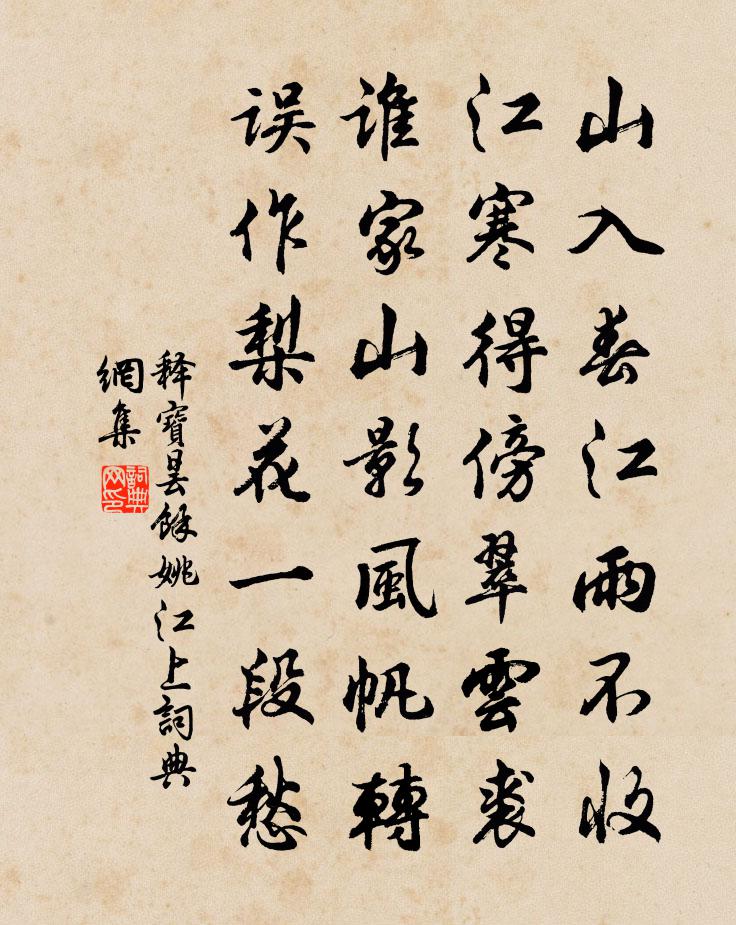 山入春江雨不收
江寒得傍翠雲裘
誰家山影風帆轉
误作梨花一段愁
释寶曇餘姚江上詞典
網集
詞典
网印